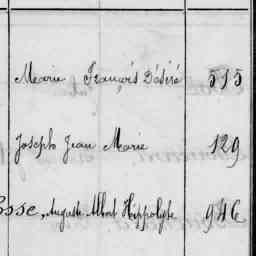 Marie François Désiré 515
Joseph Jean Marie 129
osse, Auguste Albert Hippolyte 946